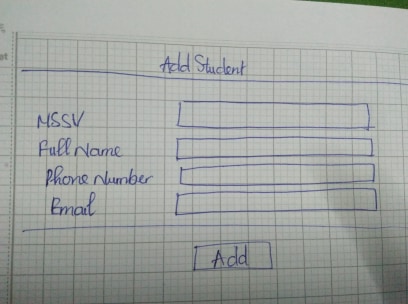 Add Student
MSSV
Full Name
Phone Number
Email
Add